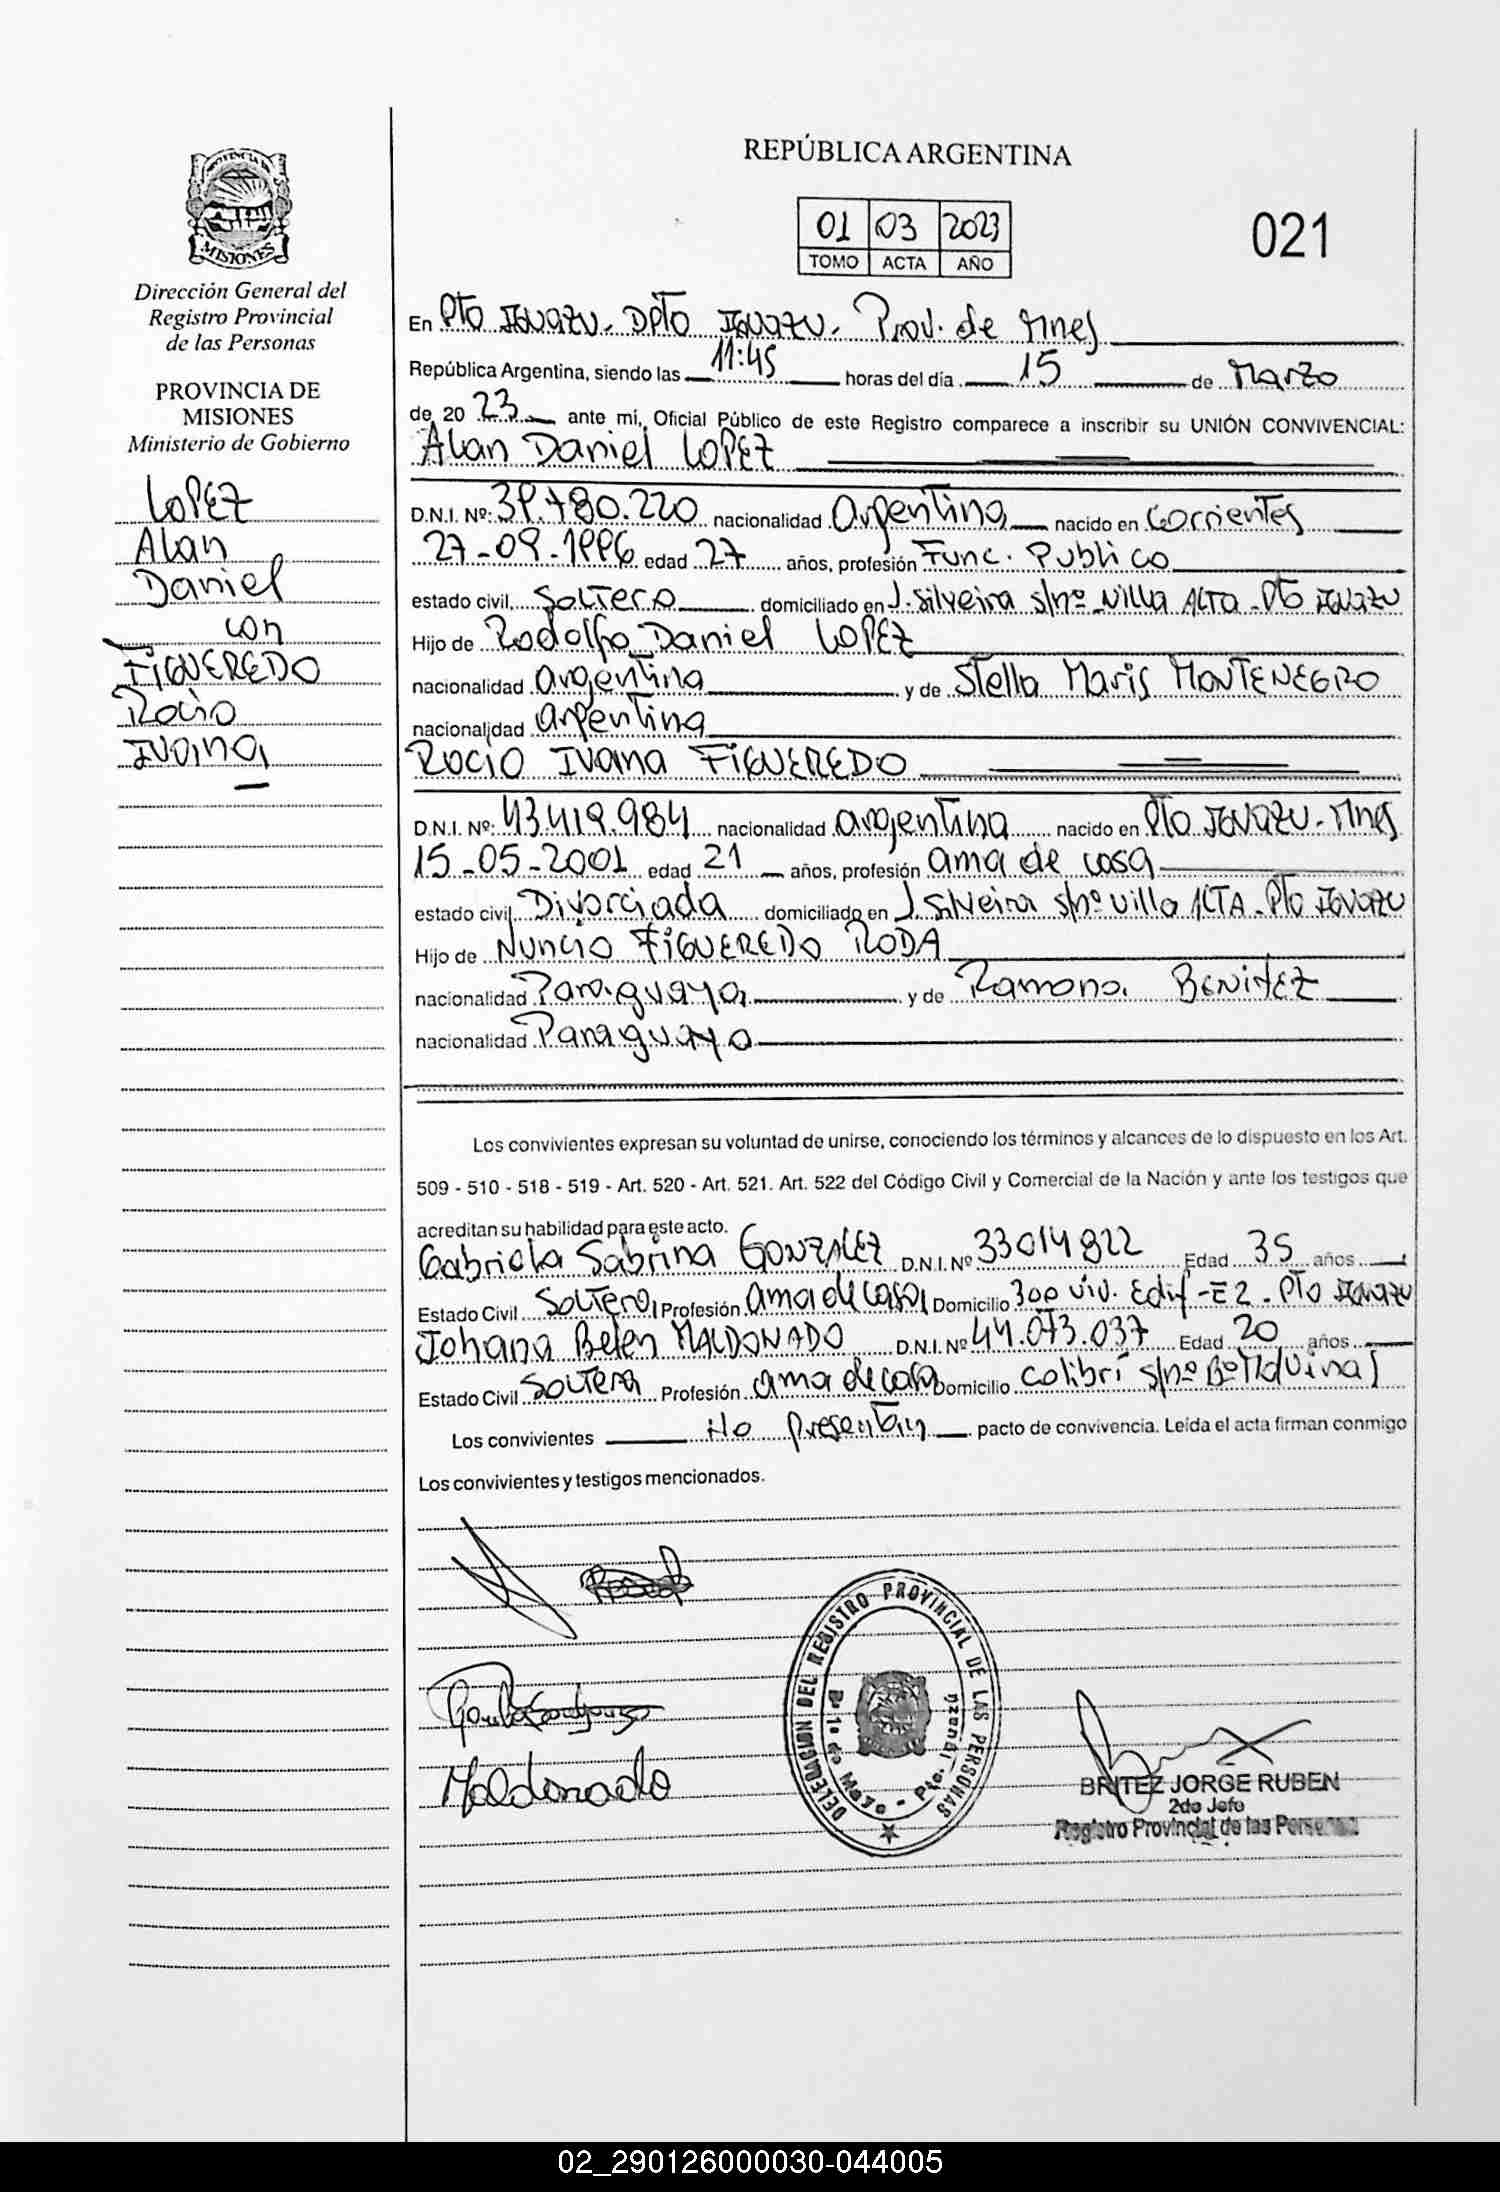 REPÚBLICA ARGENTINA
01 03 2023
TOMO ACTA AÑO
021
PROVINCIA DE
MISIONES
Dirección General del
Registro Provincial
de las Personas
PROVINCIA DE
MISIONES
Ministerio de Gobierno
LOPEZ
Alan
Daniel
con
FIGUEREDO
Rocio
Ivana
En Pto IGUAZU. DPTO IGUAZU. Prov. de Mnes
República Argentina, siendo las 11:45 horas del día 15 de Marzo
de 20 23 ante mi, Oficial Público de este Registro comparece a inscribir su UNIÓN CONVIVENCIAL:
Alan Daniel LOPEZ
D.N.I. Nº: 39.780.220 nacionalidad Argentina nacido en Corrientes
27-09-1996 edad 27 años, profesión Func. Publico
estado civil Soltero domiciliado en J. Silveira s/nº Villa ALTA - Pto IGUAZU
Hijo de Rodolfo Daniel LOPEZ
nacionalidad argentina y de Stella Maris MONTENEGRO
nacionalidad argentina
ROCIO Ivana FIGUEREDO
D.N.I. Nº: 43.419.984 nacionalidad argentina nacido en Pto IGUAZU - Mnes
15-05-2001 edad 21 años, profesión ama de casa
estado civil Divorciada domiciliado en J. Silveira s/nº Villa ALTA - Pto IGUAZU
Hijo de Nuncio FIGUEREDO RODA
nacionalidad Paraguaya y de Ramona BENITEZ
nacionalidad Paraguaya
Los convivientes expresan su voluntad de unirse, conociendo los términos y alcances de lo dispuesto en los Art.
509 - 510 - 518 - 519 - Art. 520 - Art. 521. Art. 522 del Código Civil y Comercial de la Nación y ante los testigos que
acreditan su habilidad para este acto.
Gabriela Sabrina GONZALEZ D.N.I. Nº 33014822 Edad 35 años
Estado Civil Soltera Profesión ama de casa Domicilio 300 viv. Edif - E2 - Pto IGUAZU
Johana Belen MALDONADO D.N.I. Nº 44.073.037 Edad 20 años
Estado Civil Soltera Profesión ama de casa Domicilio colibrí s/nº Bº Malvinas
Los convivientes No presentan pacto de convivencia. Leída el acta firman conmigo
Los convivientes y testigos mencionados.
Maldonado
DELEGACION DEL REGISTRO PROVINCIAL DE LAS PERSONAS
Bº 1º de Mayo - Pto. Iguazú
BRITEZ JORGE RUBEN
2do Jefe
Registro Provincial de las Personas
02_290126000030-044005